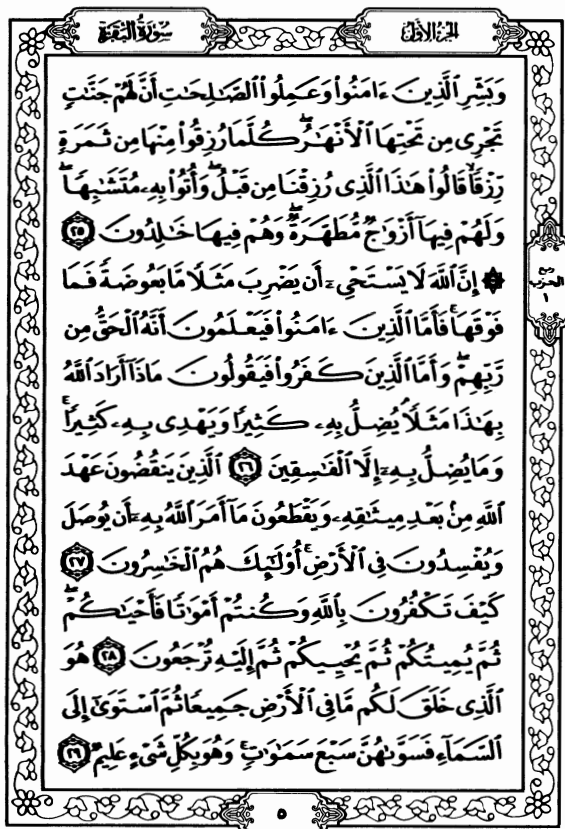 الجزء الأول
سورة البقرة
وَبَشِّرِ ٱلَّذِينَ ءَامَنُوا۟ وَعَمِلُوا۟ ٱلصَّٰلِحَٰتِ أَنَّ لَهُمْ جَنَّٰتٍ
تَجْرِى مِن تَحْتِهَا ٱلْأَنْهَٰرُ ۖ كُلَّمَا رُزِقُوا۟ مِنْهَا مِن ثَمَرَةٍ
رِّزْقًا ۙ قَالُوا۟ هَٰذَا ٱلَّذِى رُزِقْنَا مِن قَبْلُ ۖ وَأُتُوا۟ بِهِۦ مُتَشَٰبِهًا ۖ
وَلَهُمْ فِيهَآ أَزْوَٰجٌ مُّطَهَّرَةٌ ۖ وَهُمْ فِيهَا خَٰلِدُونَ ٢٥
۞ إِنَّ ٱللَّهَ لَا يَسْتَحْىِۦٓ أَن يَضْرِبَ مَثَلًا مَّا بَعُوضَةً فَمَا
ربع الحزب ١
فَوْقَهَا ۚ فَأَمَّا ٱلَّذِينَ ءَامَنُوا۟ فَيَعْلَمُونَ أَنَّهُ ٱلْحَقُّ مِن
رَّبِّهِمْ ۖ وَأَمَّا ٱلَّذِينَ كَفَرُوا۟ فَيَقُولُونَ مَاذَآ أَرَادَ ٱللَّهُ
بِهَٰذَا مَثَلًا ۘ يُضِلُّ بِهِۦ كَثِيرًا وَيَهْدِى بِهِۦ كَثِيرًا ۚ
وَمَا يُضِلُّ بِهِۦٓ إِلَّا ٱلْفَٰسِقِينَ ٢٦ ٱلَّذِينَ يَنقُضُونَ عَهْدَ
ٱللَّهِ مِنۢ بَعْدِ مِيثَٰقِهِۦ وَيَقْطَعُونَ مَآ أَمَرَ ٱللَّهُ بِهِۦٓ أَن يُوصَلَ
وَيُفْسِدُونَ فِى ٱلْأَرْضِ ۚ أُو۟لَٰٓئِكَ هُمُ ٱلْخَٰسِرُونَ ٢٧
كَيْفَ تَكْفُرُونَ بِٱللَّهِ وَكُنتُمْ أَمْوَٰتًا فَأَحْيَٰكُمْ ۖ
ثُمَّ يُمِيتُكُمْ ثُمَّ يُحْيِيكُمْ ثُمَّ إِلَيْهِ تُرْجَعُونَ ٢٨ هُوَ
ٱلَّذِى خَلَقَ لَكُم مَّا فِى ٱلْأَرْضِ جَمِيعًا ثُمَّ ٱسْتَوَىٰٓ إِلَى
ٱلسَّمَآءِ فَسَوَّىٰهُنَّ سَبْعَ سَمَٰوَٰتٍ ۚ وَهُوَ بِكُلِّ شَىْءٍ عَلِيمٌ ٢٩
٥